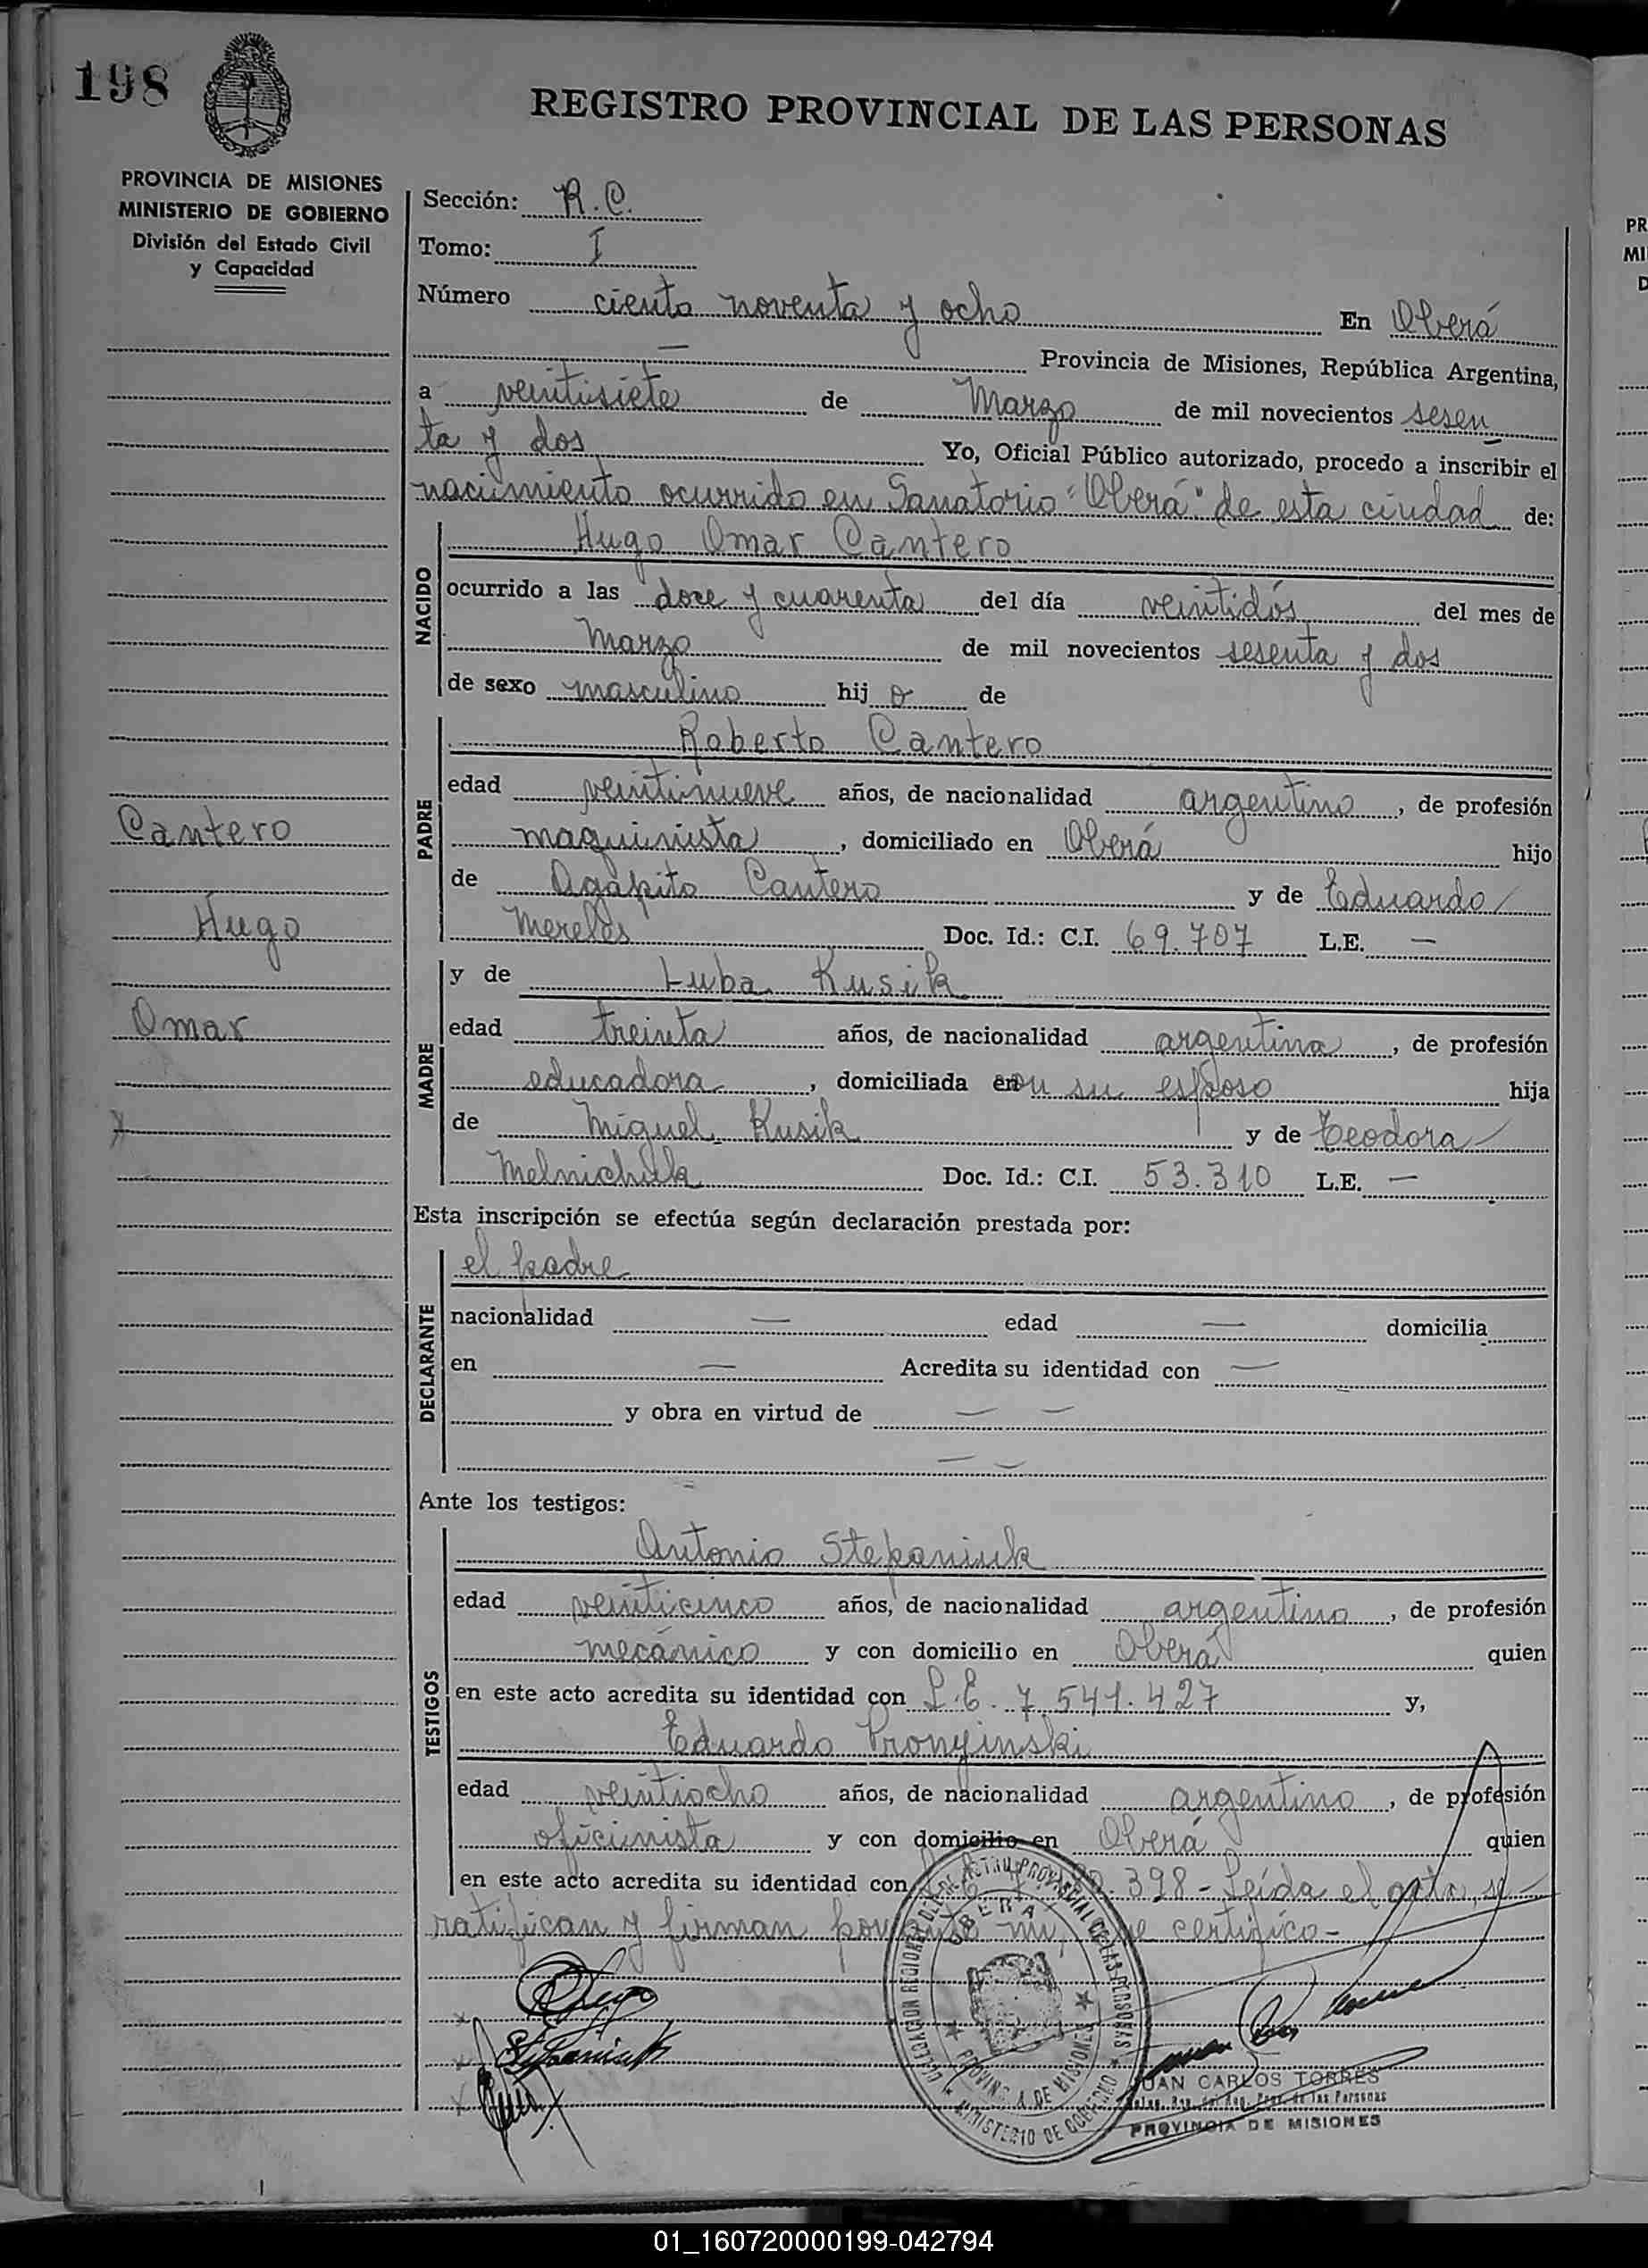 198
REGISTRO PROVINCIAL DE LAS PERSONAS
PROVINCIA DE MISIONES
MINISTERIO DE GOBIERNO
División del Estado Civil
y Capacidad
Sección: R.C.
Tomo: I
Número ciento noventa y ocho En Oberá
— Provincia de Misiones, República Argentina,
a veintisiete de Marzo de mil novecientos sesen
ta y dos Yo, Oficial Público autorizado, procedo a inscribir el
nacimiento ocurrido en Sanatorio "Oberá" de esta ciudad de:
NACIDO
Hugo Omar Cantero
ocurrido a las doce y cuarenta del día veintidós del mes de
Marzo de mil novecientos sesenta y dos
de sexo masculino hijo de
PADRE
Roberto Cantero
edad veintinueve años, de nacionalidad argentino, de profesión
maquinista, domiciliado en Oberá hijo
de Agapito Cantero y de Eduardo
Mereles Doc. Id.: C.I. 69.707 L.E. —
Cantero
Hugo
Omar
MADRE
y de Luba Kusik
edad treinta años, de nacionalidad argentina, de profesión
educadora, domiciliada con su esposo hija
de Miguel Kusik y de Teodora
Melnichuk Doc. Id.: C.I. 53.310 L.E. —
Esta inscripción se efectúa según declaración prestada por:
DECLARANTE
el padre
nacionalidad — edad — domicilia
en — Acredita su identidad con —
y obra en virtud de — —
— —
Ante los testigos:
TESTIGOS
Antonio Stepaniuk
edad veinticinco años, de nacionalidad argentino, de profesión
mecánico y con domicilio en Oberá quien
en este acto acredita su identidad con L.E. 7.541.427 y,
Eduardo Pronyinski
edad veintiocho años, de nacionalidad argentino, de profesión
oficinista y con domicilio en Oberá quien
en este acto acredita su identidad con 398 - Leída el acta, se
ratifican y firman por ante mi, que certifico-
DELEGACION REGIONAL DEL REGISTRO PROVINCIAL DE LAS PERSONAS
OBERA
PROVINCIA DE MISIONES
MINISTERIO DE GOBIERNO
Stepaniuk
JUAN CARLOS TORRES
Deleg. Reg. del Reg. Prov. de las Personas
PROVINCIA DE MISIONES
PR
MI
D
01_160720000199-042794